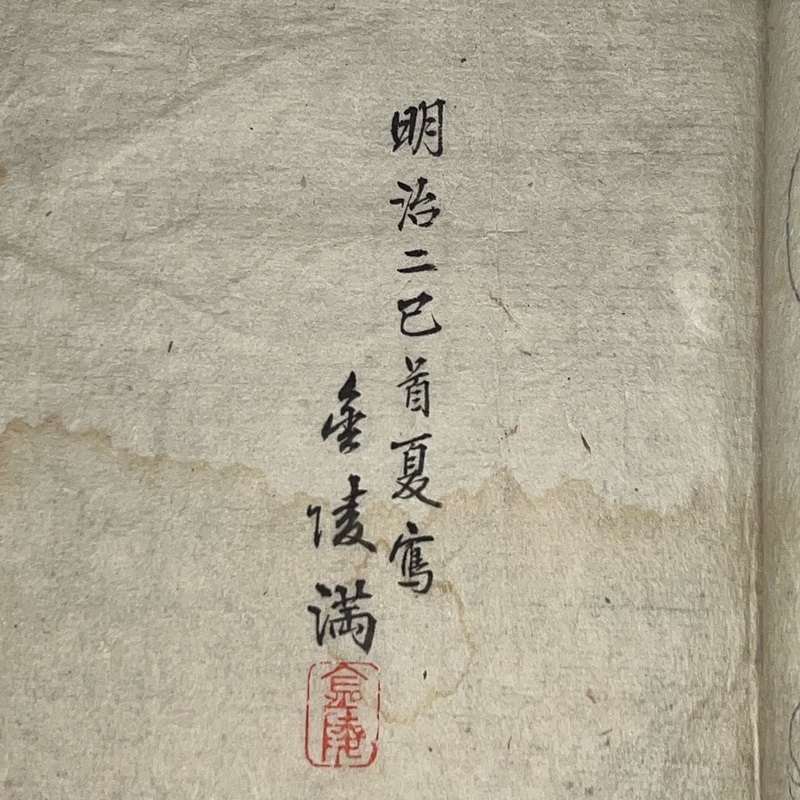 明治二巳首夏寫
金陵満
金陵